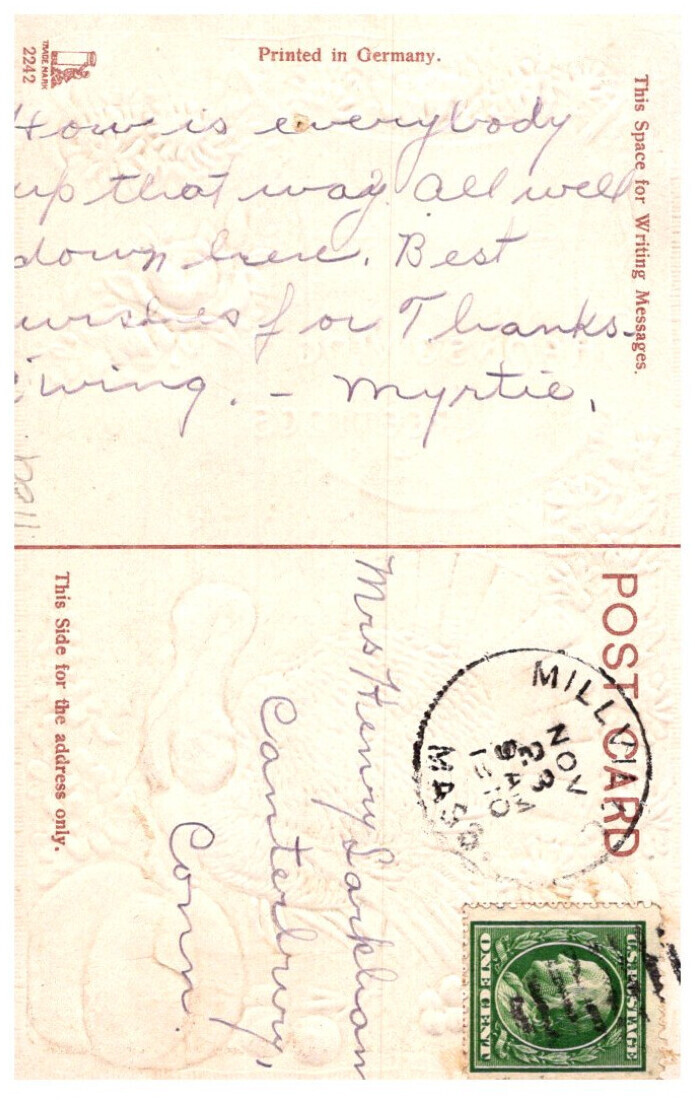 Printed in Germany.
TRADE MARK
2242
This Space for Writing Messages.
How is everybody
up that way. All well
down here. Best
wishes for Thanks-
giving. - Myrtie.
POST CARD
This Side for the address only.
Mrs Henry
Canterbury,
Conn.
MILLVI
NOV
23
9 AM
1910
MASS.
U.S. POSTAGE
ONE CENT